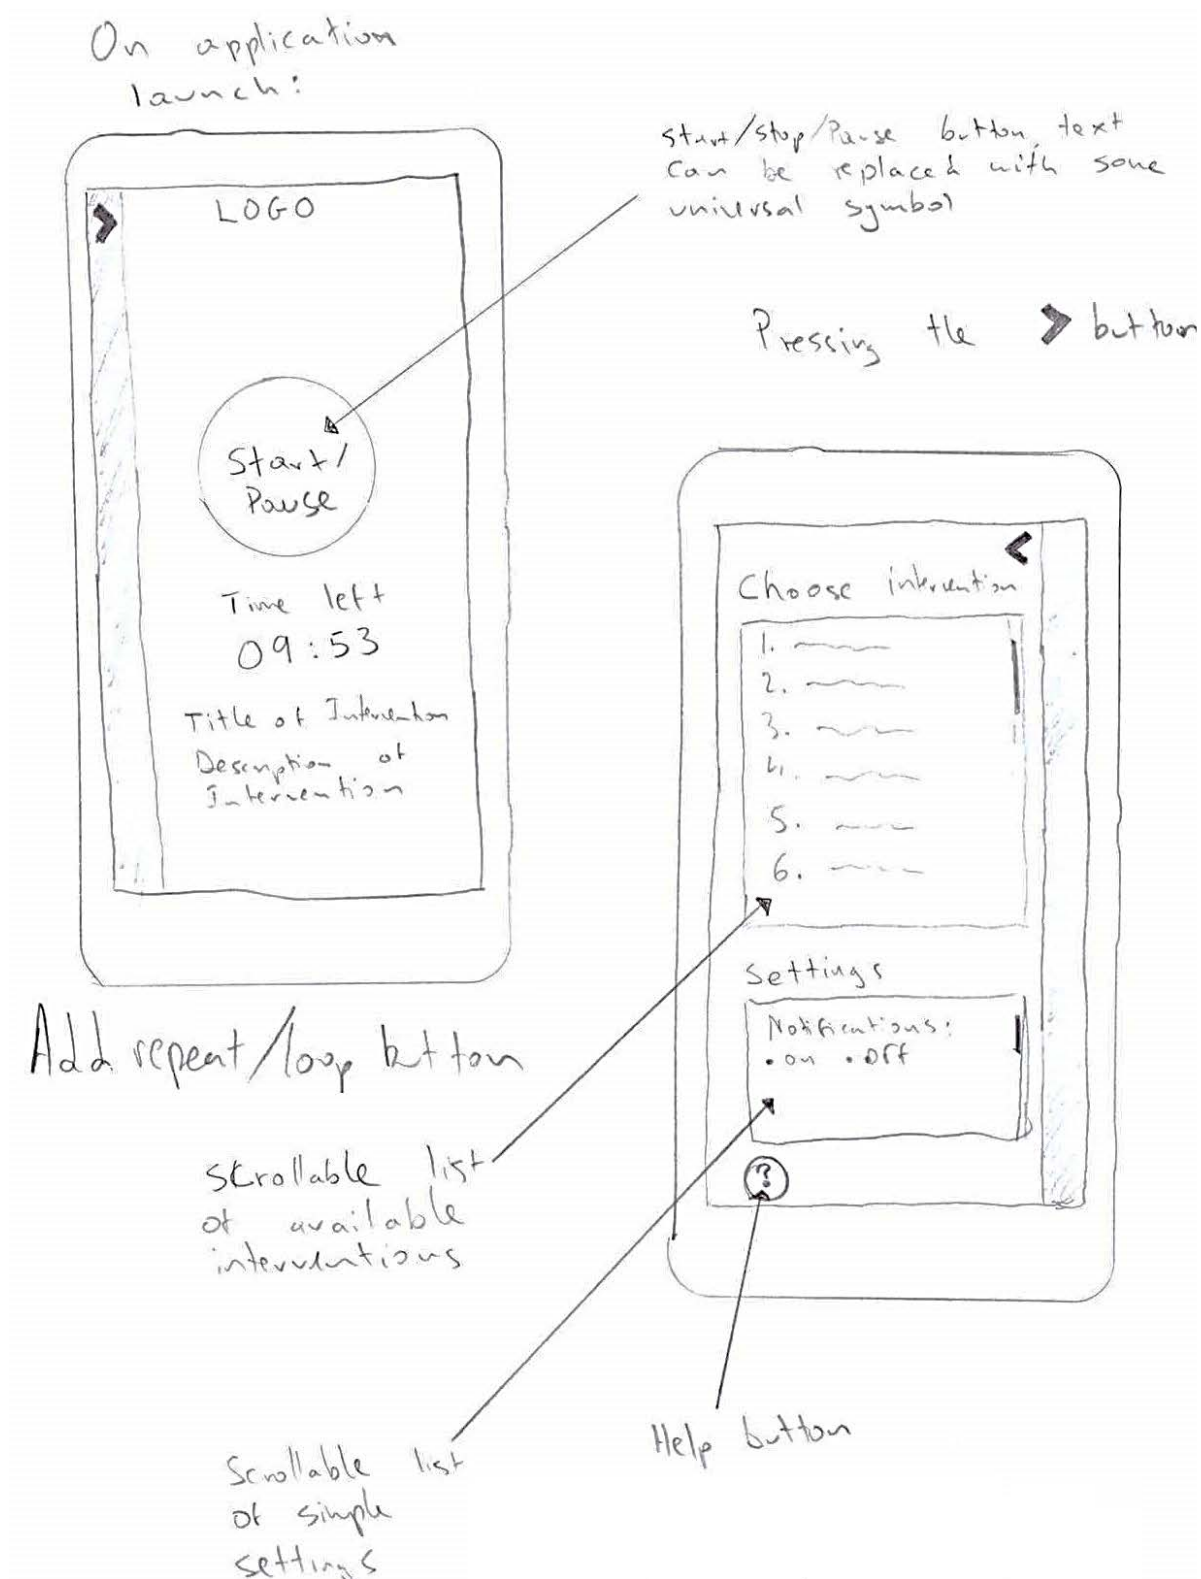 On application
launch:
LOGO
Start/
Pause
Time left
09:53
Title of Intervention
Description of
Intervention
Start/Stop/Pause button, text
can be replaced with some
universal symbol
Pressing the > button
<
Choose intervention
1.
2.
3.
4.
5.
6.
Settings
Notifications:
• on • Off
?
Add repeat/loop button
Scrollable list
of available
interventions
Help button
Scrollable list
of simple
settings